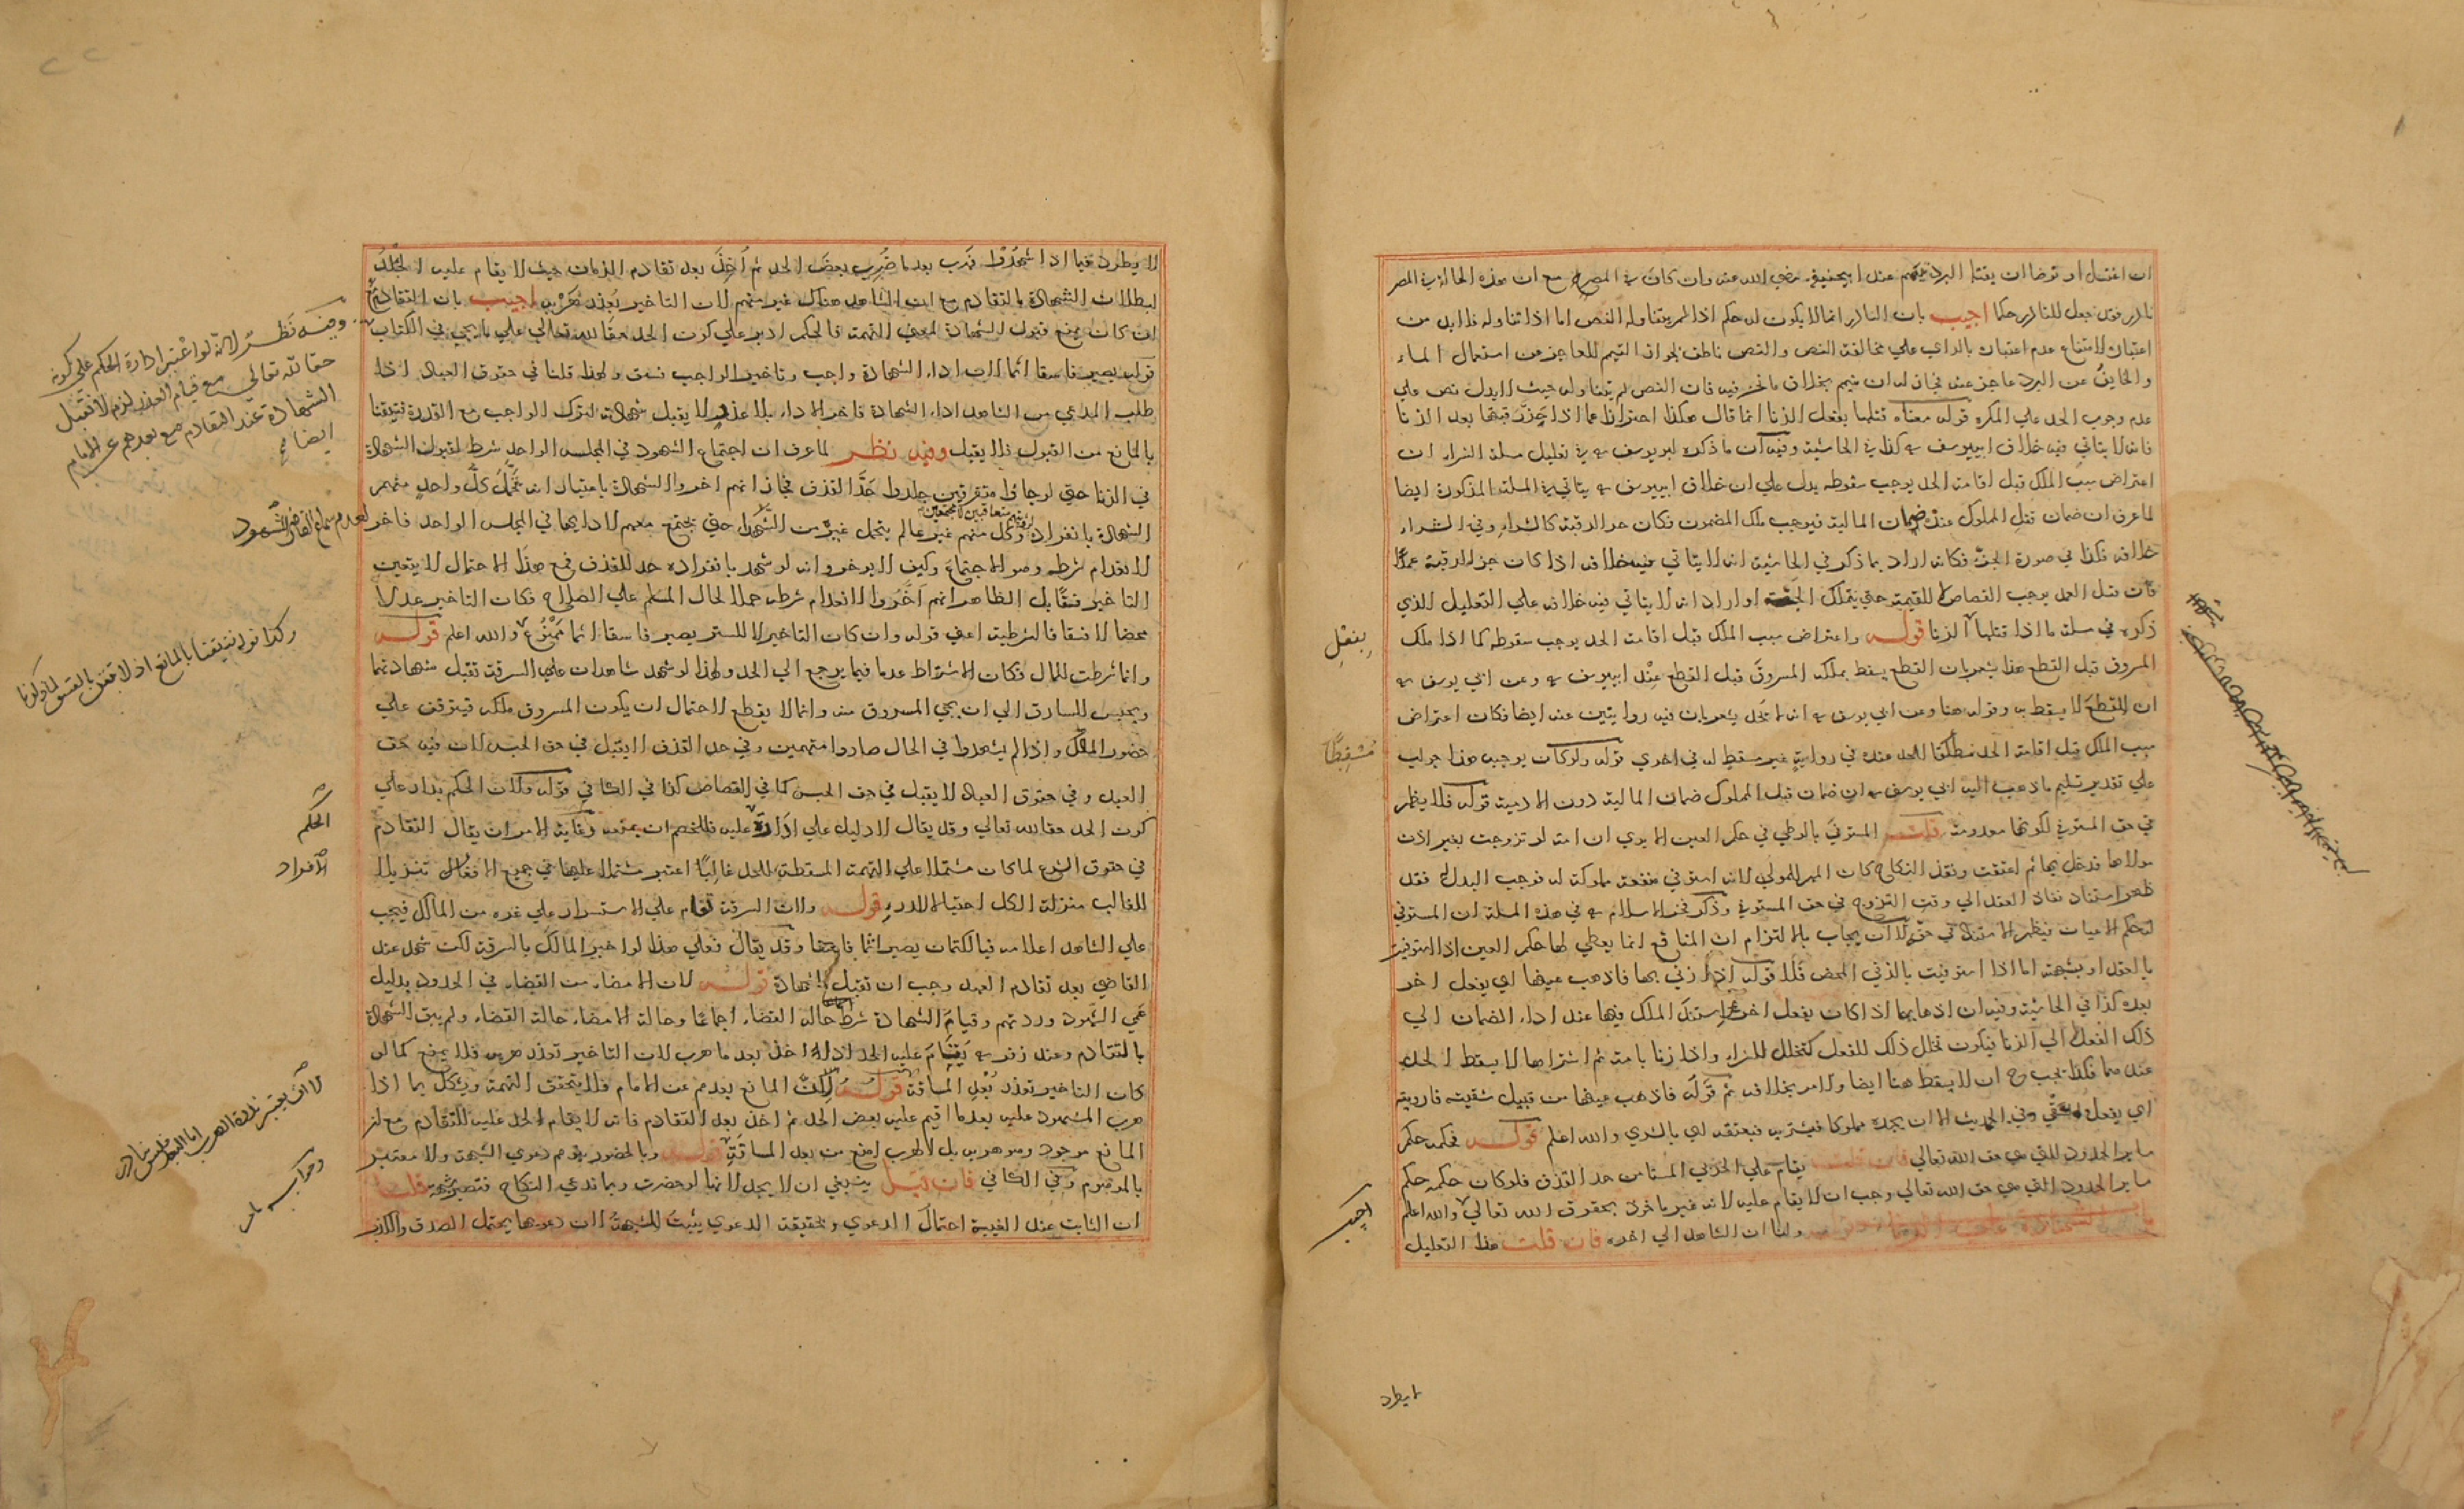 ان اغتسل او توضأ ان يقتله البرد يتيمم عند ابيحنيفة رضي الله عنه وان كان في المصر مع ان هذه الحالة في المصر
نادر فقد جعل للنادر حكما اجيب بان النادر انما لا يكون له حكم اذا لم يتناوله النص اما اذا تناوله فلا بد من
اعتباره لامتناع عدم اعتباره بالراي علي مخالفة النص والنص ناطق بجواز التيمم للعاجز عن استعمال الماء
والخايف من البرد عاجز عنه فجاز له ان يتيم بخلاف ما نحن فيه فان النص لم يتناوله حيث لا يدل نص علي
عدم وجوب الحد علي المكره قوله معناه قتلها بفعل الزنا انما قال هكذا احترازا عما اذا رقبتها بعد الزنا
فانه لا يتاتي فيه خلاف ابييوسف كذا في الحاشية وفيه ان ما ذكره ابو يوسف في تعليل مسئلة الشراء ان
اعتراض سبب الملك قبل اقامة الحد يوجب سقوطه يدل علي ان خلاف ابييوسف يتاتي في المسئلة المذكورة ايضا
لما عرف ان ضمان قتل المملوك عنده ضمان المالية فيوجب ملك المضمون فكان حز الرقبة كالشراء وفي الشراء
خلافه فكذا في صورة الحز فكانه اراد بما ذكر في الحاشية انه لا يتاتي فيه خلافه اذا كان حز الرقبة عمدا
فان قتل العمد يوجب القصاص لا القيمة حتي يتملك الجثة او اراد انه لا يتاتي فيه خلافه علي التعليل الذي
ذكره في مسئلة ما اذا قتلها الزنا قوله واعتراض سبب الملك قبل اقامة الحد يوجب سقوطه كما اذا ملك
بفعل
المسروق قبل القطع هذا يشعر بان القطع يسقط بملك المسروق قبل القطع عند ابييوسف وعن ابي يوسف
ان القطع لا يسقط به وقوله هنا وعن ابي يوسف انه لا يحد يشعر بان فيه روايتين عنه ايضا فكان اعتراض
سبب الملك قبل اقامة الحد مسقطا للحد عنده في رواية غير مسقط له في اخري قوله ولو كان يوجبه هذا جواب
مسقطا
علي تقدير تسليم ما ذهب اليه ابي يوسف ان ضمان قتل المملوك ضمان المالية دون الادمية قوله فلا يظهر
في حق المستوفي لكونها معدومة قلت المستوفي بالوطي في حكم العين الا يري ان امة لو تزوجت بغير اذن
مولاها فدخل بها ثم اعتقت ونفذ النكاح كان المهر للمولي لانه استوفي منفعة مملوكة له فوجب البدل له فقد
ظهر استناد نفاذ العقد الي وقت التزوج في حق المستوفي وذكر فخر الاسلام في هذه المسئلة ان المستوفي
لحكم الاعيان فيظهر الاستناد في حقه الا ان يجاب بالالتزام ان المنافع انما يعطي لها حكم العين اذا استوفيت
بالعقد او بشبهته اما اذا استوفيت بالزني المحض فلا قوله اذا زني بها فاذهب عينها اي بفعل اخر
بعده كذا في الحاشية وفيه ان اذهابها اذا كان بفعل اخر استند الملك فيها عند اداء الضمان الي
ذلك الفعل لا الي الزنا فيكون تخلل ذلك الفعل كتخلل الشراء واذا زنا بامة ثم اشتراها لا يسقط الحد
عندهما فكذا يجب ان لا يسقط هنا ايضا والامر بخلافه ثم قوله فاذهب عينها من قبيل سقيته فارويته
اي بفعل وفي الحديث الا ان يجده مملوكا فيشتريه فيعتقه اي بالشري والله اعلم قوله فحكمه حكم
ساير الحدود التي هي حق الله تعالي فان قلت يقام علي الحربي المستامن حد القذف فلو كان حكمه حكم
ساير الحدود التي هي حق الله تعالي وجب ان لا يقام عليه لانه غير ماخوذ بحقوق الله تعالي والله اعلم
اجيب
باب الشهادة علي الزنا قوله ولنا ان الشاهد الي اخره فان قلت هذا التعليل
لايطرد
لا يطرد فيما اذا شهدوا فهرب بعد ما ضرب بعض الحد ثم اخذ بعد تقادم الزمان حيث لا يقام عليه الجلد
لبطلان الشهادة بالتقادم مع ان الشاهد هناك غير متهم لان التاخير بعذر هربه اجيب بان التقادم
ان كان يمنع قبول الشهادة لمعني التهمة فالحكم ادير علي كون الحد حقا لله تعالي علي ما يجي في الكتاب
وفيه نظر لانه لو اعتبر ادارة الحكم علي كونه
حقا لله تعالي مع قيام العذر لزم ان لا تقبل
الشهادة عند التقادم مع بعدهم عن الامام
ايضا
قوله يصير فاسقا اثما لان اداء الشهادة واجب وتاخير الواجب فسق ولهذا قلنا في حقوق العباد اذا
طلب المدعي من الشاهد اداء الشهادة فاخر الاداء بلا عذر لا يقبل شهادته لترك الواجب مع القدرة فتيقنا
بالمانع من القبول فلا يقبل وفيه نظر لما عرف ان اجتماع الشهود في المجلس الواحد شرط لقبول الشهادة
في الزنا حتي لو جاؤا متفرقين جلدوا حد القذف فجاز انهم اخروا الشهادة باعتبار انه تحمل كل واحد منهم
الشهادة بانفراده وكل منهم غير عالم بتحمل غيره من الشهداء حتي يجتمع معهم لادايها في المجلس الواحد فاخر
لعدم سماع القاضي الشهود
لانعدام شرطه وهو الاجتماع وكيف لا يوخر وانه لو شهد بانفراده حد للقذف فمع هذا الاحتمال لا يتعين
التاخير فسقا بل الظاهر انهم اخروا لانعدام شرطه حملا لحال المسلم علي الصلاح فكان التاخير عدلا
محضا لا فسقا فالشرطية اعني قوله وان كان التاخير لا للستر يصير فاسقا اثما ممنوع والله اعلم قوله
وكذا قوله فتيقنا بالمانع اذ لا تيقن بالفسق لما ذكرنا
وانما شرطت للمال فكان الاشتراط عدما فيما يرجع الي الحد ولهذا لو شهد شاهدان علي السرقة تقبل شهادتهما
ويحبس السارق الي ان يجي المسروق منه وانما لا يقطع لاحتمال ان يكون المسروق ملكه فيتوقف علي
حضور المالك واذا لم يشهدوا في الحال صاروا متهمين وفي حد القذف لا يقبل في حق الحبس لان فيه حق
العبد وفي حقوق العباد لا يقبل في حق الحبس كما في القصاص كذا في الكافي قوله ولان الحكم يدار علي
الحكم
كون الحد حقا لله تعالي وقد يقال لا دليل علي ادارة عليه فللخصم ان يمنعه وغاية الامر ان يقال التقادم
في حقوق الشرع لما كان مشتملا علي التهمة المسقطة للحد غالبا اعتبر مشتملا عليها في جميع الافراد تنزيلا
الافراد
للغالب منزلة الكل احتيالا للدرء قوله ولان السرقة تقام علي الاستسرار علي غرة من المالك فيجب
علي الشاهد اعلامه فبالكتمان يصير اثما فاسقا وقد يقال فعلي هذا لو اخبر المالك بالسرقة لكن شهد عند
القاضي بعد تقادم العهد وجب ان تقبل الشهادة قوله لان الامضاء من القضاء في الحدود بدليل
عمي الشهود وردتهم وقيام الشهادة شرط حالة القضاء اجماعا وحالة الامضاء حالة القضاء ولم يبق الشهادة
بالتقادم وعند زفر يقام عليه الحد اذا اخذ بعد ما هرب لان التاخير بعذر هربه فلا يمنع كما لو
كان التاخير بعذر بعد المسافة قوله لان المانع بعدهم عن الامام فلا يتحقق التهمة ويشكل بما اذا
هرب المشهود عليه بعدما اقيم عليه بعض الحد ثم اخذ بعد التقادم فانه لا يقام الحد عليه للتقادم مع ان
المانع موجود وهو هربه بل الهرب امنع من بعد المسافة قوله وبالحضور يتوهم دعوي الشبهة ولا معتبر
وجوابه
بالموهوم وفي الكافي فان قيل ينبغي ان لا يحد لانها لو حضرت ربما تدعي النكاح فتصير شبهة قلنا
ان الثابت عند الغيبة احتمال الدعوي وبحقيقة الدعوي يثبت الشبهة لان دعويها يحتمل الصدق والكذب